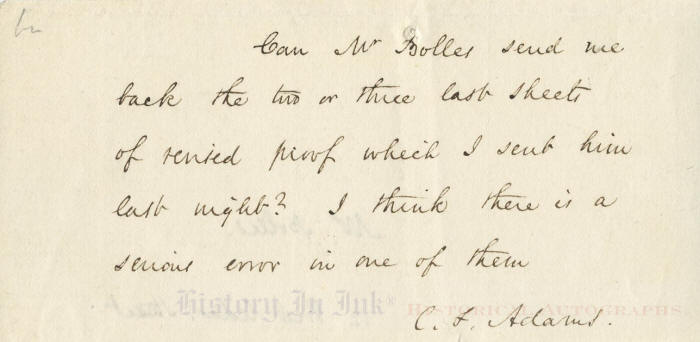 Can Mr Bolles send me
back the two or three last sheets
of revised proof which I sent him
last night? I think there is a
serious error in one of them
History In Ink® Historical Autographs
C. F. Adams.